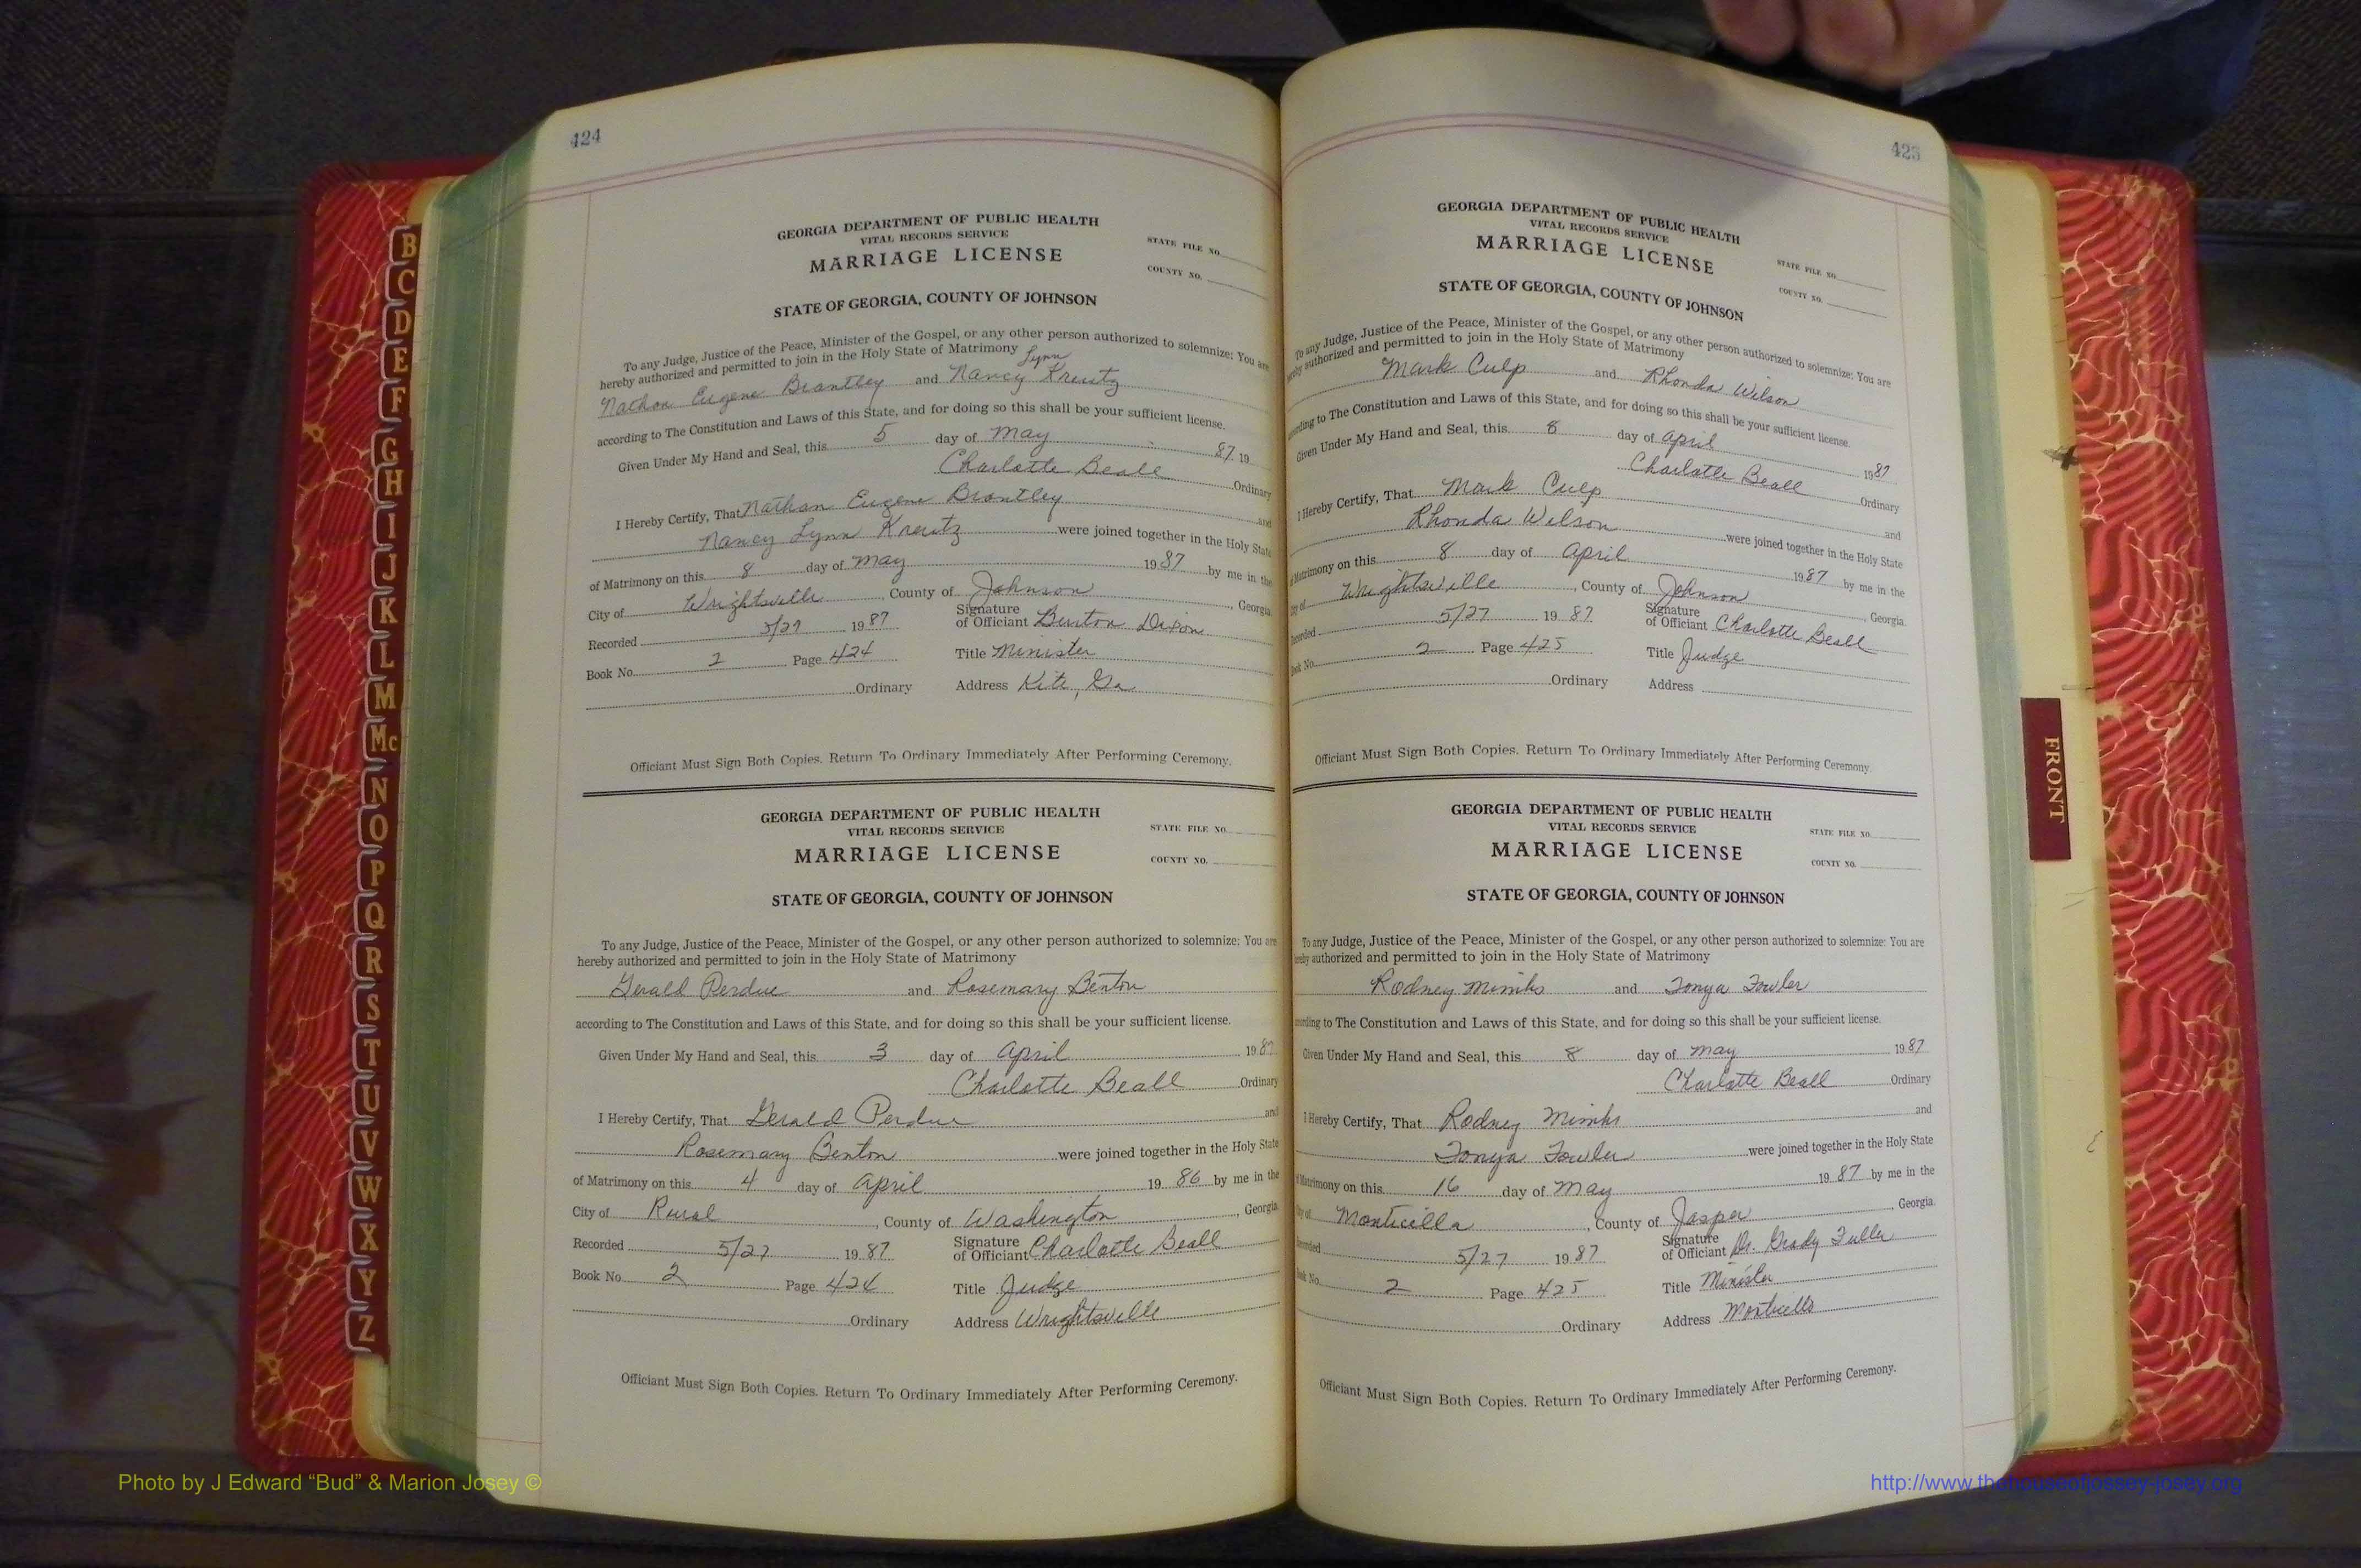 424
GEORGIA DEPARTMENT OF PUBLIC HEALTH
VITAL RECORDS SERVICE
MARRIAGE LICENSE
STATE FILE NO.
COUNTY NO.
STATE OF GEORGIA, COUNTY OF JOHNSON
To any Judge, Justice of the Peace, Minister of the Gospel, or any other person authorized to solemnize: You are
hereby authorized and permitted to join in the Holy State of Matrimony
Lynn
Nathan Eugene Brantley and Nancy Kreutz
according to The Constitution and Laws of this State, and for doing so this shall be your sufficient license.
Given Under My Hand and Seal, this 5 day of May 87 19
Charlotte Beall Ordinary
I Hereby Certify, That Nathan Eugene Brantley and
Nancy Lynn Kreutz were joined together in the Holy State
of Matrimony on this 8 day of May 1987 by me in the
City of Wrightsville, County of Johnson, Georgia
Recorded 5/27 1987 Signature of Officiant Benton Dixon
Book No. 2 Page 424 Title Minister
Ordinary Address Kite, Ga
Officiant Must Sign Both Copies. Return To Ordinary Immediately After Performing Ceremony.
GEORGIA DEPARTMENT OF PUBLIC HEALTH
VITAL RECORDS SERVICE
MARRIAGE LICENSE
STATE FILE NO.
COUNTY NO.
STATE OF GEORGIA, COUNTY OF JOHNSON
To any Judge, Justice of the Peace, Minister of the Gospel, or any other person authorized to solemnize: You are
hereby authorized and permitted to join in the Holy State of Matrimony
Gerald Perdue and Rosemary Benton
according to The Constitution and Laws of this State, and for doing so this shall be your sufficient license.
Given Under My Hand and Seal, this 3 day of April 1987
Charlotte Beall Ordinary
I Hereby Certify, That Gerald Perdue and
Rosemary Benton were joined together in the Holy State
of Matrimony on this 4 day of April 19 86 by me in the
City of Rural, County of Washington, Georgia
Recorded 5/27 1987 Signature of Officiant Charlotte Beall
Book No. 2 Page 424 Title Judge
Ordinary Address Wrightsville
Officiant Must Sign Both Copies. Return To Ordinary Immediately After Performing Ceremony.
425
GEORGIA DEPARTMENT OF PUBLIC HEALTH
VITAL RECORDS SERVICE
MARRIAGE LICENSE
STATE FILE NO.
COUNTY NO.
STATE OF GEORGIA, COUNTY OF JOHNSON
To any Judge, Justice of the Peace, Minister of the Gospel, or any other person authorized to solemnize: You are
hereby authorized and permitted to join in the Holy State of Matrimony
Mark Culp and Rhonda Wilson
according to The Constitution and Laws of this State, and for doing so this shall be your sufficient license.
Given Under My Hand and Seal, this 8 day of April 1987
Charlotte Beall Ordinary
I Hereby Certify, That Mark Culp and
Rhonda Wilson were joined together in the Holy State
of Matrimony on this 8 day of April 1987 by me in the
City of Wrightsville, County of Johnson, Georgia
Recorded 5/27 19 87 Signature of Officiant Charlotte Beall
Book No. 2 Page 425 Title Judge
Ordinary Address
Officiant Must Sign Both Copies. Return To Ordinary Immediately After Performing Ceremony.
GEORGIA DEPARTMENT OF PUBLIC HEALTH
VITAL RECORDS SERVICE
MARRIAGE LICENSE
STATE FILE NO.
COUNTY NO.
STATE OF GEORGIA, COUNTY OF JOHNSON
To any Judge, Justice of the Peace, Minister of the Gospel, or any other person authorized to solemnize: You are
hereby authorized and permitted to join in the Holy State of Matrimony
Rodney Mimbs and Tonya Fowler
according to The Constitution and Laws of this State, and for doing so this shall be your sufficient license.
Given Under My Hand and Seal, this 8 day of May 1987
Charlotte Beall Ordinary
I Hereby Certify, That Rodney Mimbs and
Tonya Fowler were joined together in the Holy State
of Matrimony on this 16 day of May 19 87 by me in the
City of Monticella, County of Jasper, Georgia.
Recorded 5/27 1987 Signature of Officiant Dr. Grady Fuller
Book No. 2 Page 425 Title Minister
Ordinary Address Monticello
Officiant Must Sign Both Copies. Return To Ordinary Immediately After Performing Ceremony.
B
C
D
E
F
G
H
I
J
K
L
M
Mc
N
O
P
Q
R
S
T
U
V
W
X
Y
Z
FRONT
Photo by J Edward “Bud” & Marion Josey ©
http://www.thehouseofjossey-josey.org